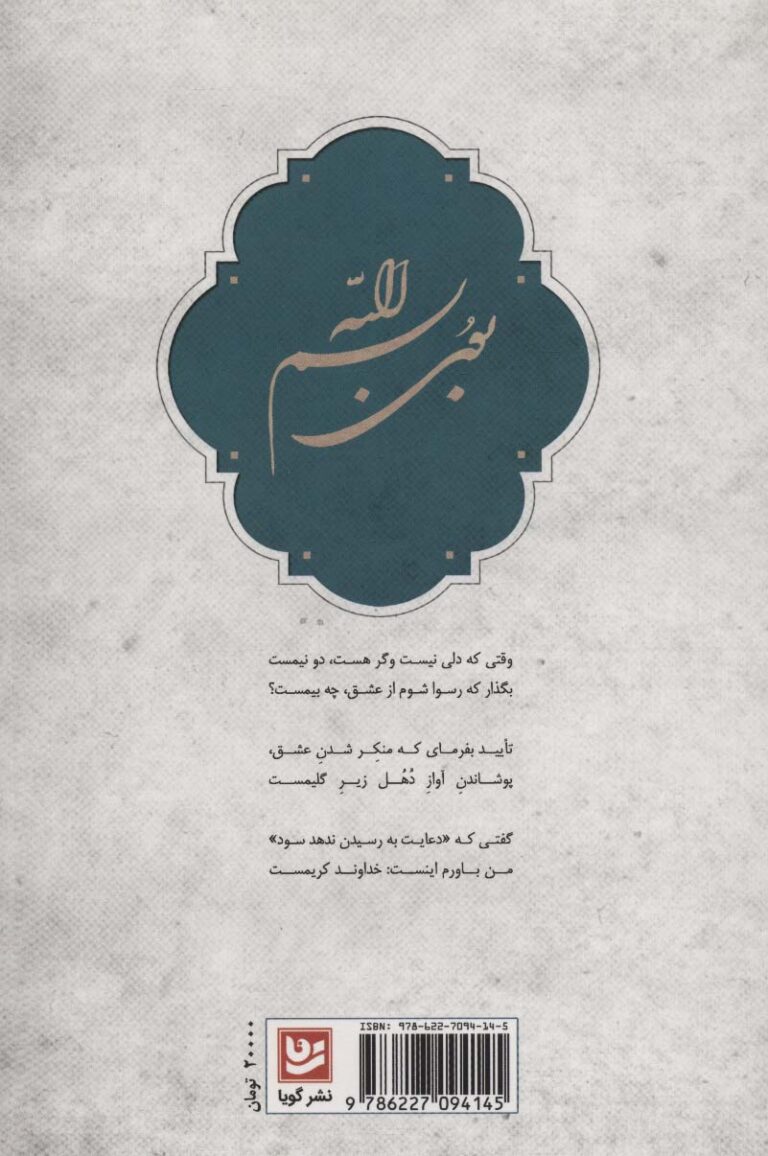 الله
وقتی که دلی نیست وگر هست، دو نیمست
بگذار که رسوا شوم از عشق، چه بیمست؟
تأیید بفرمای که منکِر شدنِ عشق،
پوشاندنِ آوازِ دُهُل زیرِ گلیمست
گفتی که «دعایت به رسیدن ندهد سود»
من باورم اینست: خداوند کریمست
۲۰۰۰۰ تومان
نشر گویا
ISBN: 978-622-7094-14-5
9 786227 094145